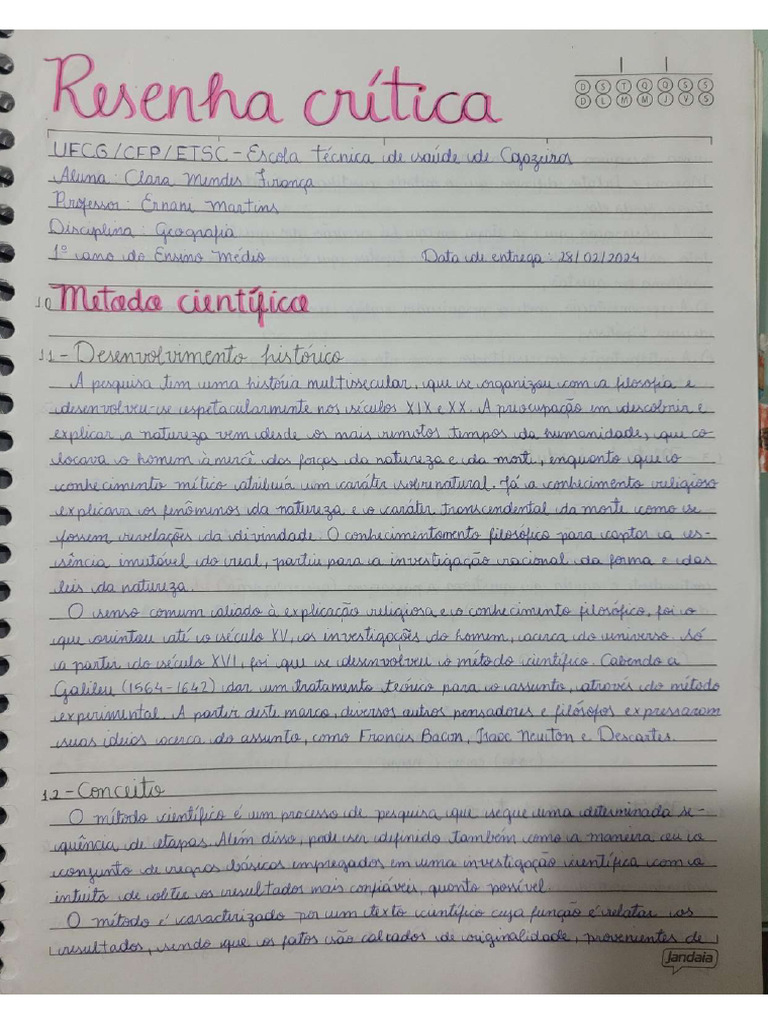 Resenha crítica
D S T Q Q S S
D L M M J V S
UFCG/CFP/ETSC - Escola técnica de saúde de Cajazeiras
Aluna: Clara Mendes França
Professor: Ernani Martins
Disciplina: Geografia
1º ano do Ensino Médio Data de entrega: 28/02/2024
1.0 Metodo científico
1.1 - Desenvolvimento histórico
A pesquisa tem uma história multissecular, que se organizou com a filosofia e
desenvolveu-se espetacularmente nos séculos XIX e XX. A preocupação em descobrir e
explicar a natureza vem desde os mais remotos tempos da humanidade, que co-
locava o homem à mercê das forças da natureza e da morte, enquanto que o
conhecimento mítico atribuía um caráter sobrenatural. Já o conhecimento religioso
explicava os fenômenos da natureza e o caráter transcendental da morte como se
fossem revelações da divindade. O conhecimentomento filosófico para captar a es-
sência imutável do real, partiu para a investigação racional da forma e das
leis da natureza.
O senso comum aliado à explicação religiosa e o conhecimento filosófico, foi o
que orintou até o século XV, as investigações do homem, acerca do universo. Só
a parter do século XVI, foi que se desenvolveu o método científico. Cabendo a
Galileu (1564-1642) dar um tratamento teórico para o assunto, através do método
experimental. A parter deste marco, diversos outros pensadores e filósofos expressaram
suas ideias acerca do assunto, como Francis Bacon, Isaac Newton e Descartes.
1.2 - Conceito
O método científico é um processo de pesquisa que segue uma determinada se-
quência de etapas. Além disso, pode ser definido também como a maneira ou o
conjunto de regras básicas empregados em uma investigação científica com o
intuito de obter os resultados mais confiáveis, quanto possível.
O método é caracterizado por um texto científico cuja função é relatar os
resultados, sendo que os fatos são calcados de originalidade, provenientes de
jandaia